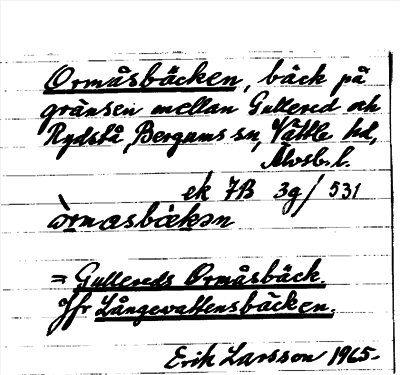 Ormåsbäcken, bäck på
gränsen mellan Gullered och
Rydstå, Bergums sn, Vättle hd,
Älvsb. l.
ek 7B 3g/531
= Gullereds Ormåsbäck.
Jfr Långevattensbäcken.
Erik Larsson 1965.